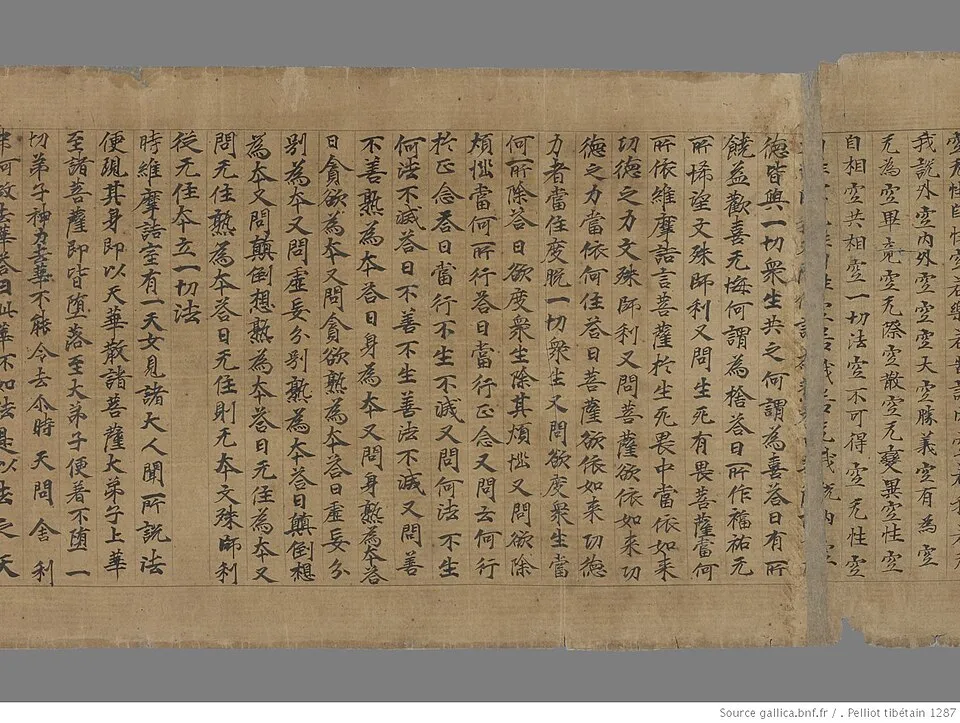 我說外空內外空空空大空勝義空有為空
无為空畢竟空无際空散空无變異空性空
自相空共相空一切法空不可得空无性空
德皆與一切衆生共之何謂為喜荅曰有所
饒益歡喜无悔何謂為捨荅曰所作福祐无
所悕望文殊師利又問生死有畏菩薩當何
所依維摩詰言菩薩於生死畏中當依如來
功德之力文殊師利又問菩薩欲依如來功
德之力當依何住荅曰菩薩欲依如來功德
力者當住度脫一切衆生又問欲度衆生當
何所除荅曰欲度衆生除其煩惱又問欲除
煩惱當何所行荅曰當行正念又問云何行
於正念荅曰當行不生不滅又問何法不生
何法不滅荅曰不善不生善法不滅又問善
不善熟為本荅曰身為本又問身熟為本荅
曰貪欲為本又問貪欲熟為本荅曰虛妄分
別為本又問虛妄分別熟為本荅曰顛倒想
為本又問顛倒想熟為本荅曰无住為本又
問无住熟為本荅曰无住則无本文殊師利
從无住本立一切法
時維摩詰室有一天女見諸大人聞所說法
便現其身即以天華散諸菩薩大弟子上華
至諸菩薩即皆墮落至大弟子便著不墮一
切弟子神力去華不能令去尒時天問舍利
弗何故去華荅曰此華不如法是以去之天
Source gallica.bnf.fr / . Pelliot tibétain 1287